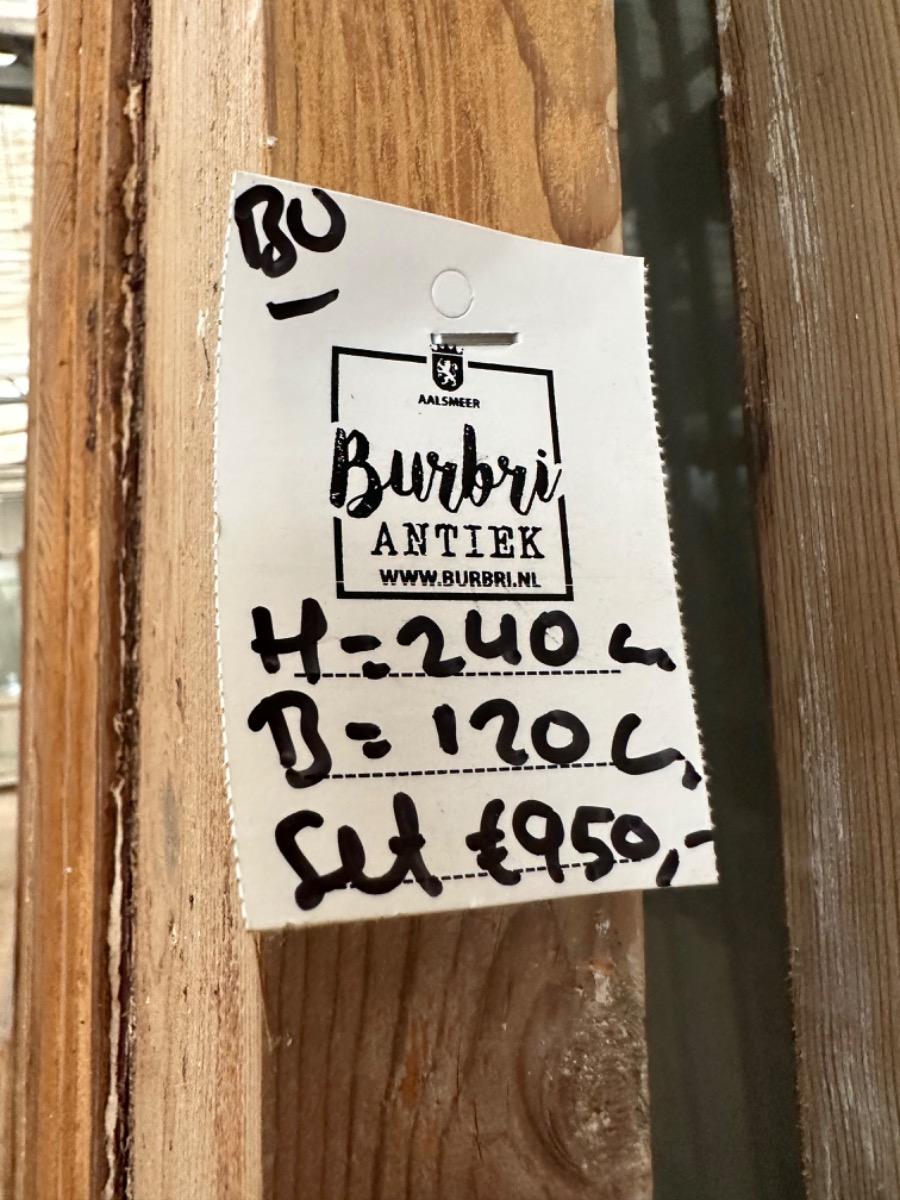 BU
AALSMEER
Burbri
ANTIEK
WWW.BURBRI.NL
H=240 cm
B=120 cm
Set €950,-